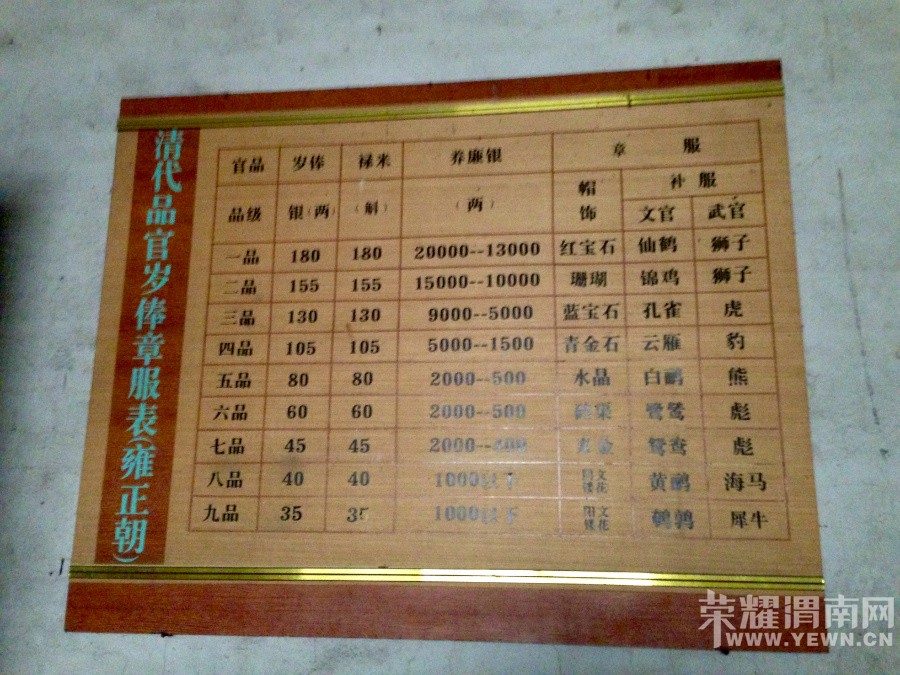 清代品官岁俸章服表(雍正朝)
官品 岁俸 禄米 养廉银 章 服
帽 补 服
品级 银(两) (斛) (两) 饰 文官 武官
一品 180 180 20000--13000 红宝石 仙鹤 狮子
二品 155 155 15000--10000 珊瑚 锦鸡 狮子
三品 130 130 9000--5000 蓝宝石 孔雀 虎
四品 105 105 5000--1500 青金石 云雁 豹
五品 80 80 2000--500 水晶 白鹇 熊
六品 60 60 2000--500 鹭鸶 彪
七品 45 45 2000--400 金 鸳鸯 彪
八品 40 40 1000以下 镂花 黄鹂 海马
九品 35 35 1000以下 阳文镂花 鹌鹑 犀牛
荣耀渭南网
WWW.YEWN.CN